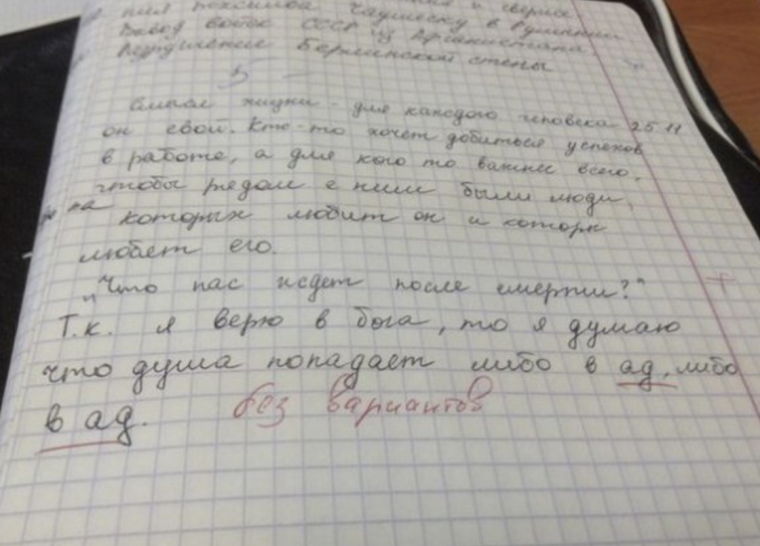 режима Чаушеску в Румынии
Вывод войск СССР из Афганистана
Разрушение Берлинской стены
5
Смысл жизни - для каждого человека 25.11
он свой. Кто-то хочет добиться успехов
в работе, а для кого то важнее всего,
чтобы рядом с ним были люди,
которых любит он и которы
любает его.
"Что нас ждет после смерти?"
Т.к. я верю в бога, то я думаю
что душа попадает либо в ад, либо
в ад. без вариантов